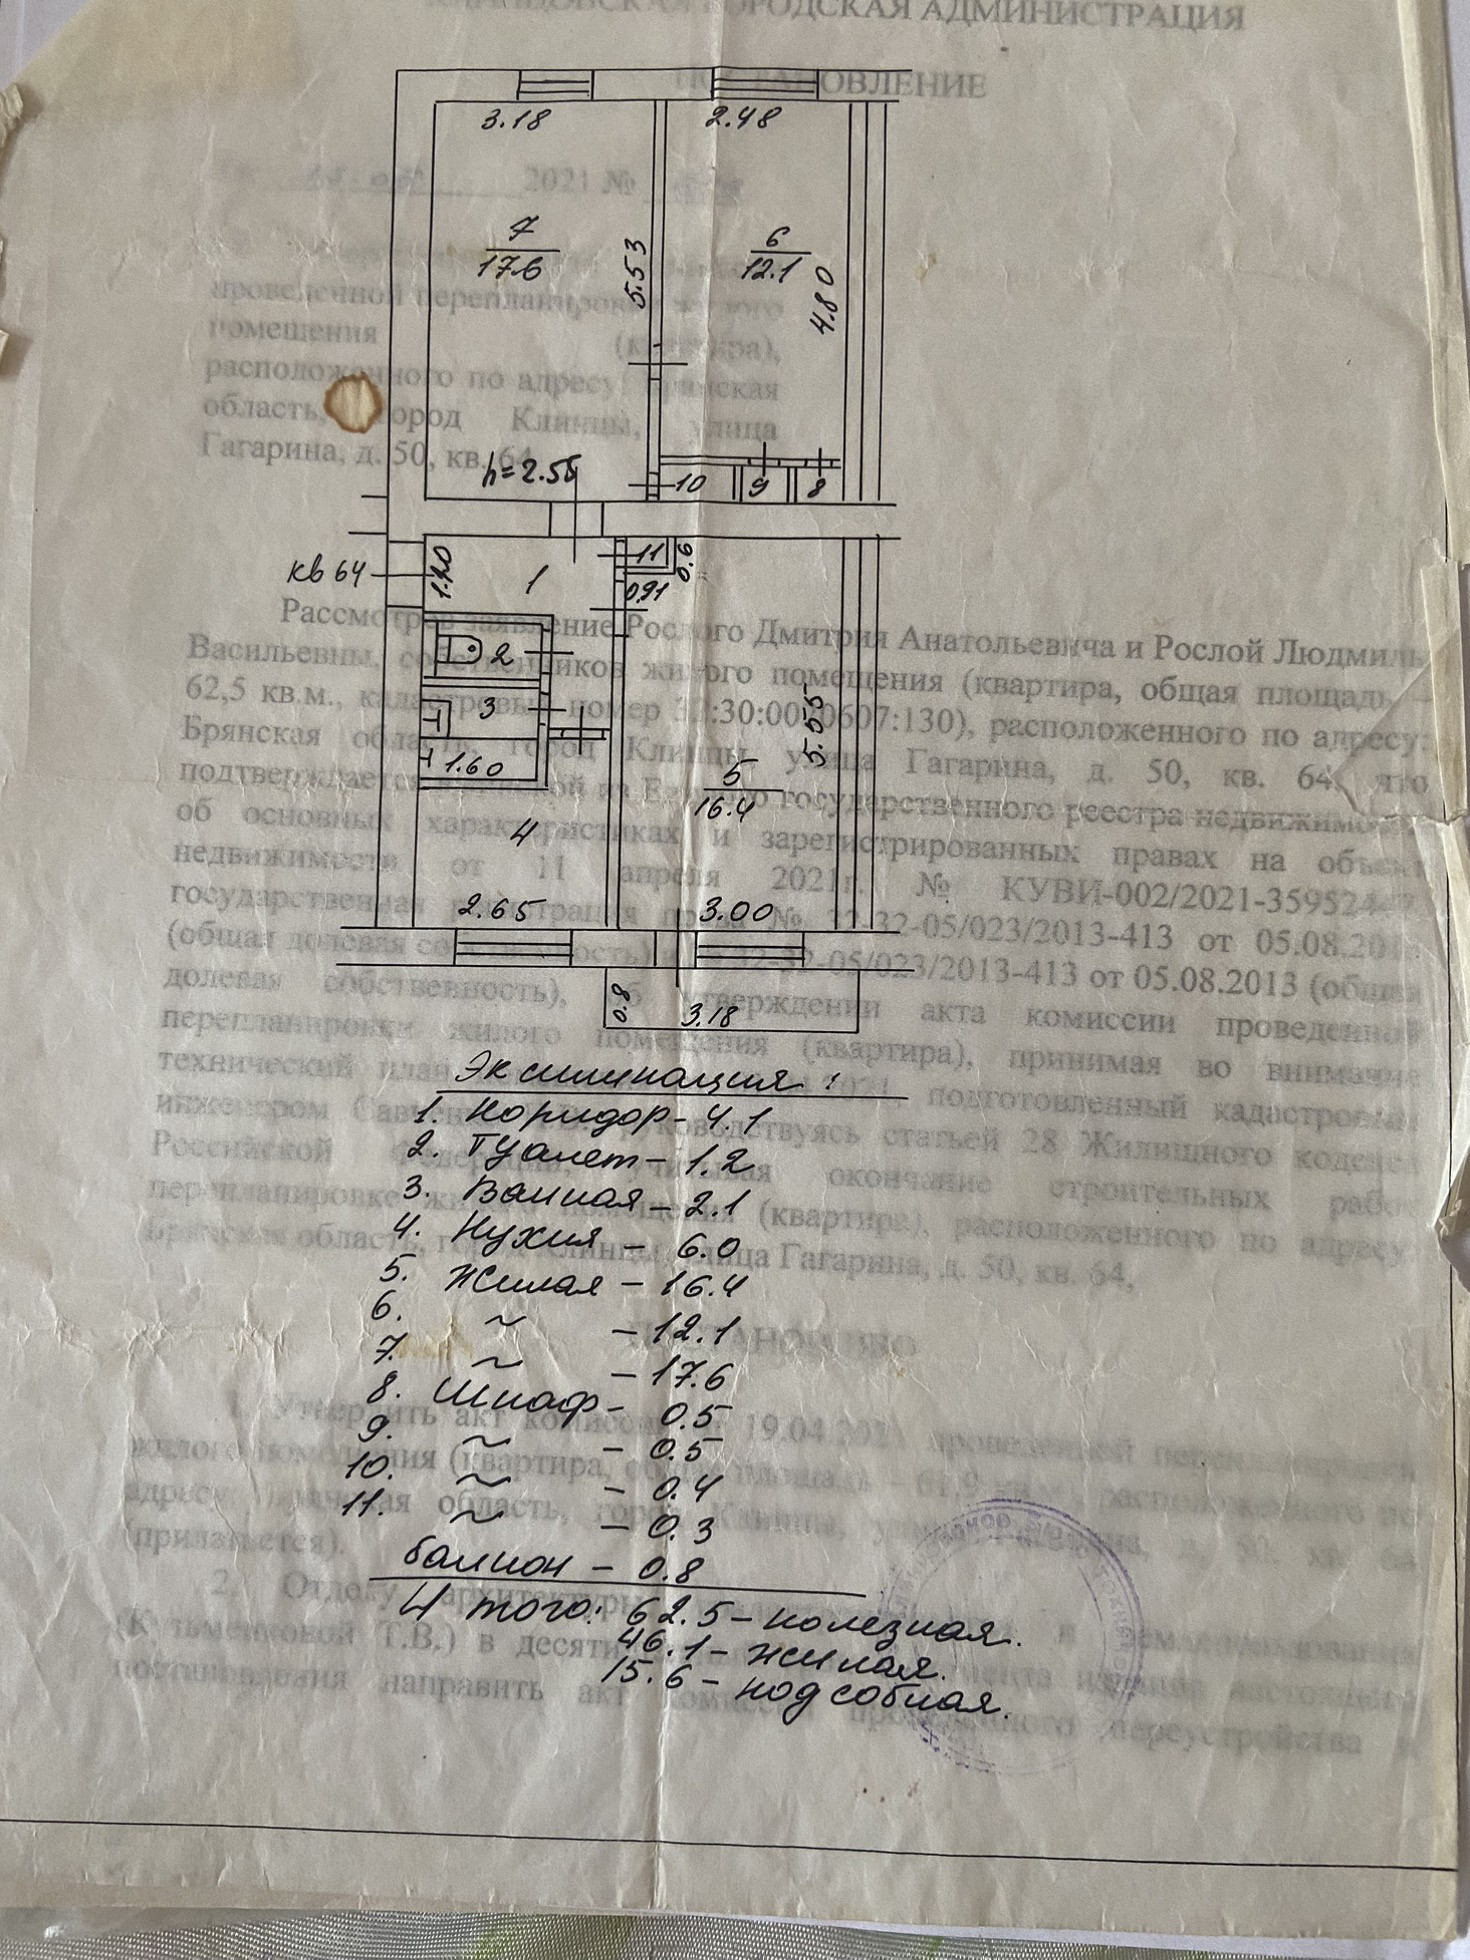 КЛИНЦОВСКАЯ ГОРОДСКАЯ АДМИНИСТРАЦИЯ
ПОСТАНОВЛЕНИЕ
2021 №
3.18
2.48
7
17.6
5.53
6
12.1
4.80
проведенной перепланировки жилого
помещения (квартира),
расположенного по адресу: Брянская
область, город Клинцы, улица
Гагарина, д. 50, кв. 64
h=2.55
10
9
8
кв 64
1.20
1
11
0.6
0.91
2
3
1.60
4
5
16.4
5.55
2.65
3.00
0.8
3.18
Рассмотрев заявление Рослого Дмитрия Анатольевича и Рослой Людмилы
Васильевны, собственников жилого помещения (квартира, общая площадь –
62,5 кв.м., кадастровый номер 32:30:0020607:130), расположенного по адресу:
Брянская область, город Клинцы, улица Гагарина, д. 50, кв. 64, что
подтверждается выпиской из Единого государственного реестра недвижимости
об основных характеристиках и зарегистрированных правах на объект
недвижимости от 11 апреля 2021г. № КУВИ-002/2021-3595244
государственная регистрация права № 32-32-05/023/2013-413 от 05.08.2013
(общая долевая собственность) 32-32-05/023/2013-413 от 05.08.2013 (общая
долевая собственность), об утверждении акта комиссии проведенной
перепланировки жилого помещения (квартира), принимая во внимание
технический план 2021, подготовленный кадастровым
инженером руководствуясь статьей 28 Жилищного кодекса
Российской Федерации, учитывая окончание строительных работ
перепланировке жилого помещения (квартира), расположенного по адресу:
Брянская область, город Клинцы, улица Гагарина, д. 50, кв. 64,
Эксшикация:
1. Коридор - 4.1
2. Туалет - 1.2
3. Ванная - 2.1
4. Кухня - 6.0
5. Жилая - 16.4
6. ~ - 12.1
7. ~ - 17.6
8. Шкаф - 0.5
9. ~ - 0.5
10. ~ - 0.4
11. ~ - 0.3
балкон - 0.8
Итого: 62.5 - полезная.
46.1 - жилая.
15.6 - подсобная.
ПОСТАНОВЛЯЮ
1. Утвердить акт комиссии 19.04.2021 проведенной перепланировки
жилого помещения (квартира, общая площадь - 61,9 кв.м), расположенного по
адресу: Брянская область, город Клинцы, улица Гагарина, д. 50, кв. 64
(прилагается).
2. Отделу архитектуры и землепользования
(Кузьменковой Т.В.) в десяти момента издания настоящего
постановления направить акт комиссии проведенного переустройства